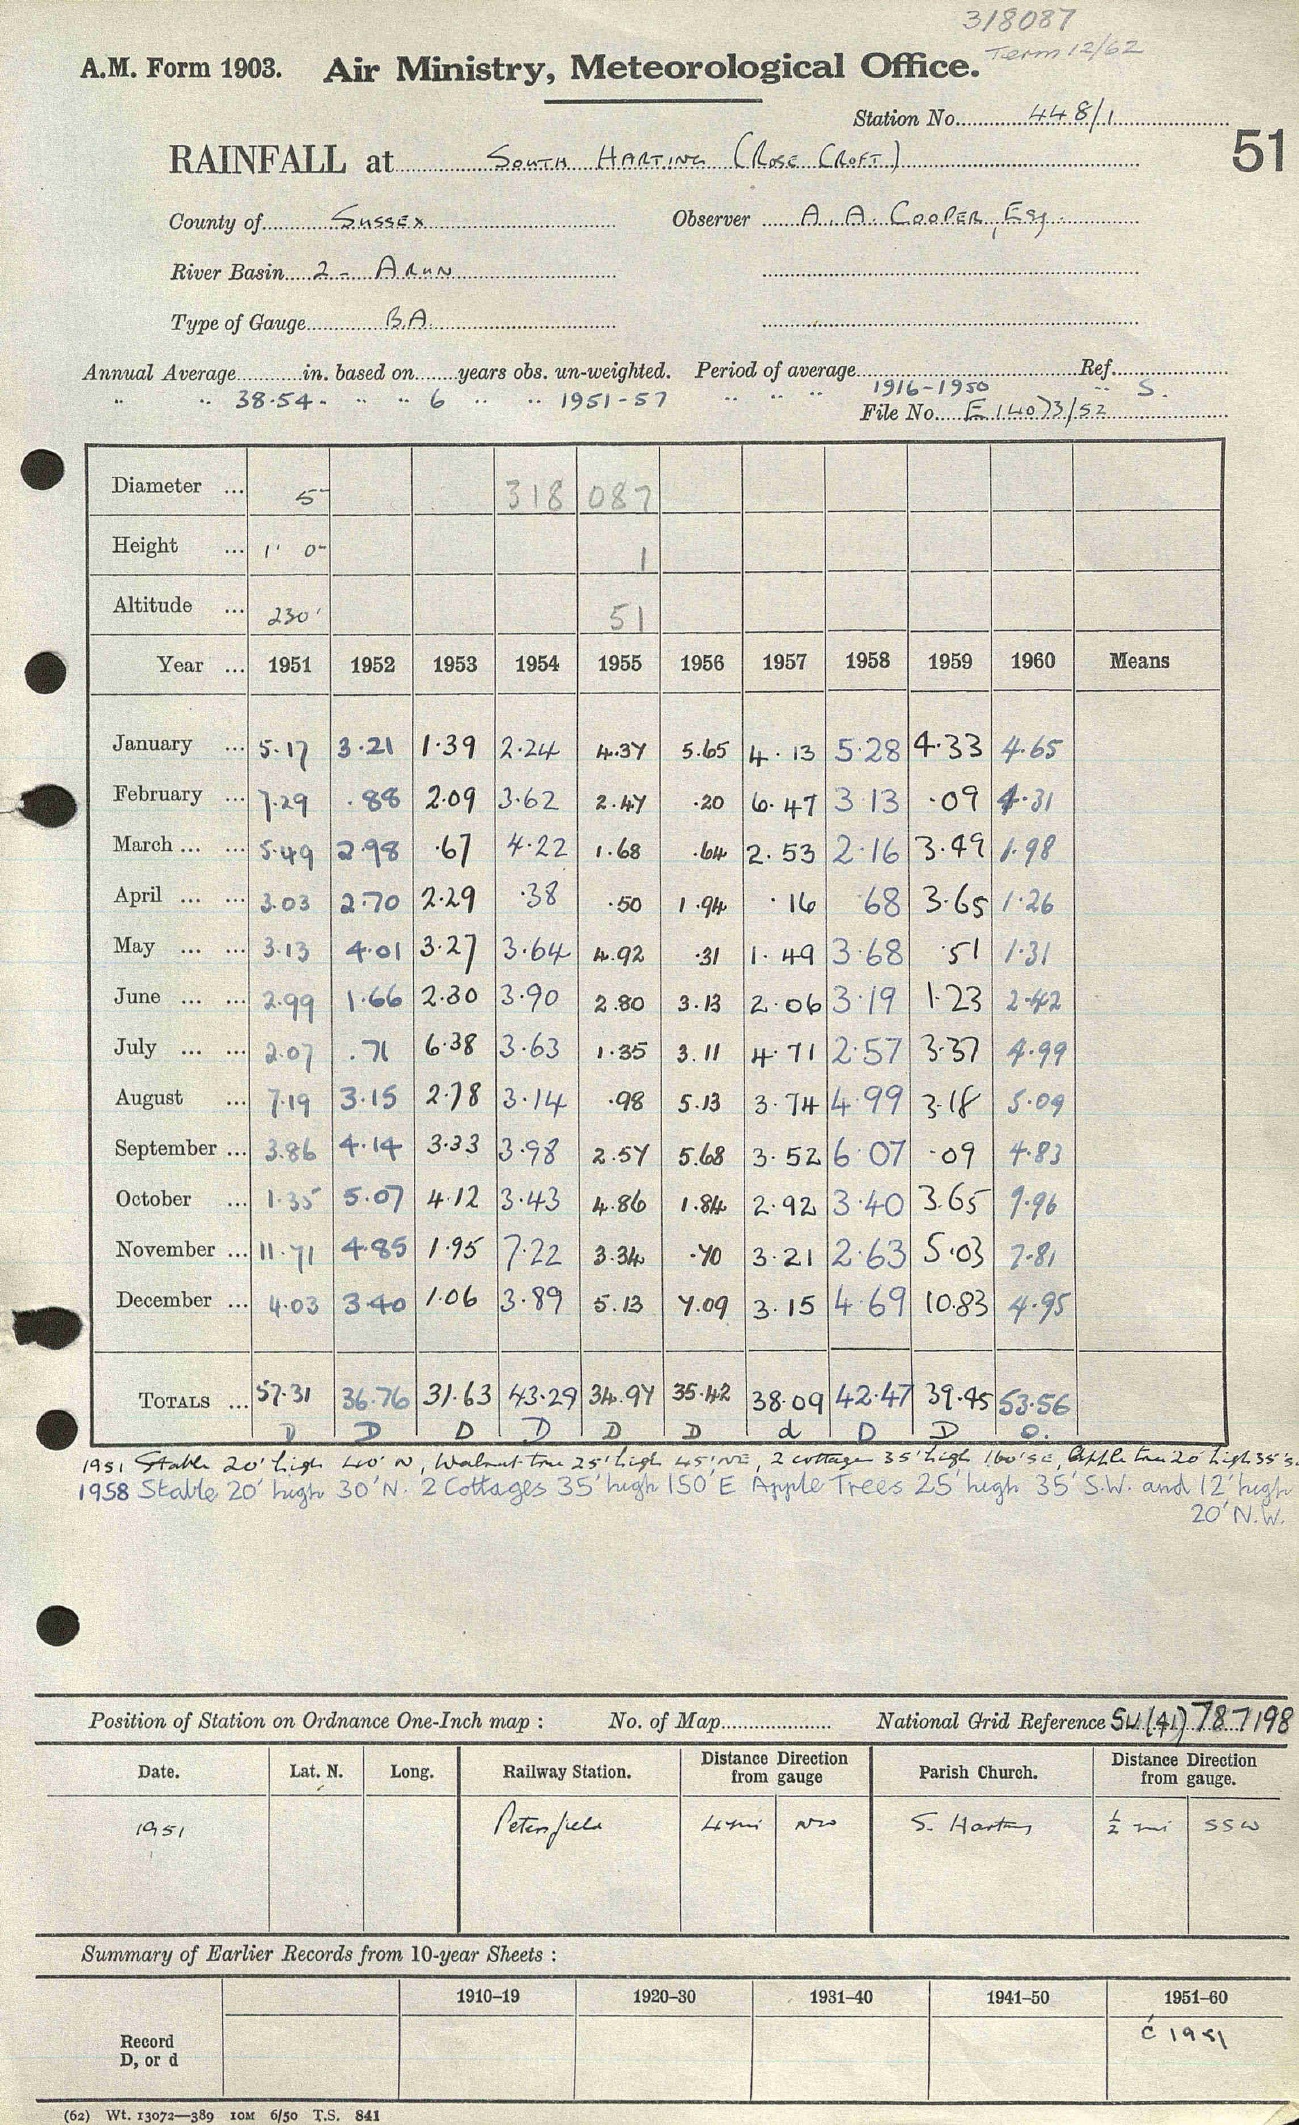 318087
Term 12/62
A.M. Form 1903. Air Ministry, Meteorological Office.
Station No. 448/1
51
RAINFALL at South Harting (Rose Croft)
County of Sussex Observer A. A. Cooper, Esq.
River Basin 2 - Arun
Type of Gauge B.A.
Annual Average in. based on years obs. un-weighted. Period of average Ref.
" " 38.54 " " 6 " " 1951-57 " " " 1916-1950 " S.
File No. E14073/52
Diameter ... 5" 318 087
Height ... 1' 0" 1
Altitude ... 230' 51
Year ... 1951 1952 1953 1954 1955 1956 1957 1958 1959 1960 Means
January ... 5.17 3.21 1.39 2.24 4.37 5.65 4.13 5.28 4.33 4.65
February ... 7.29 .88 2.09 3.62 2.47 .20 6.47 3.13 .09 4.31
March ... ... 5.49 2.98 .67 4.22 1.68 .64 2.53 2.16 3.49 1.98
April ... ... 3.03 2.70 2.29 .38 .50 1.94 .16 .68 3.65 1.26
May ... ... 3.13 4.01 3.27 3.64 4.92 .31 1.49 3.68 .51 1.31
June ... ... 2.99 1.66 2.30 3.90 2.80 3.13 2.06 3.19 1.23 2.42
July ... ... 2.07 .71 6.38 3.63 1.35 3.11 4.71 2.57 3.37 4.99
August ... 7.19 3.15 2.78 3.14 .98 5.13 3.74 4.99 3.18 5.09
September ... 3.86 4.14 3.33 3.98 2.57 5.68 3.52 6.07 .09 4.83
October ... 1.35 5.07 4.12 3.43 4.86 1.84 2.92 3.40 3.65 9.96
November ... 11.71 4.85 1.95 7.22 3.34 .70 3.21 2.63 5.03 7.81
December ... 4.03 3.40 1.06 3.89 5.13 7.09 3.15 4.69 10.83 4.95
Totals ... 57.31 36.76 31.63 43.29 34.97 35.42 38.09 42.47 39.45 53.56
D D D D D D d D D D.
1951 Stable 20' high 40' N, Walnut tree 25' high 45' NE, 2 cottages 35' high 160' SE, Apple tree 20' high 35' S.
1958 Stable 20' high 30' N. 2 Cottages 35' high 150' E Apple Trees 25' high 35' S.W. and 12' high
20' N.W.
Position of Station on Ordnance One-Inch map : No. of Map National Grid Reference SU (41) 787198
Date. Lat. N. Long. Railway Station. Distance Direction from gauge Parish Church. Distance Direction from gauge.
1951 Petersfield 4 mi NW S. Harting ½ mi SSW
Summary of Earlier Records from 10-year Sheets :
1910–19 1920–30 1931–40 1941–50 1951–60
Record
D, or d
c 1951
(62) Wt. 13072—389 10M 6/50 T.S. 841